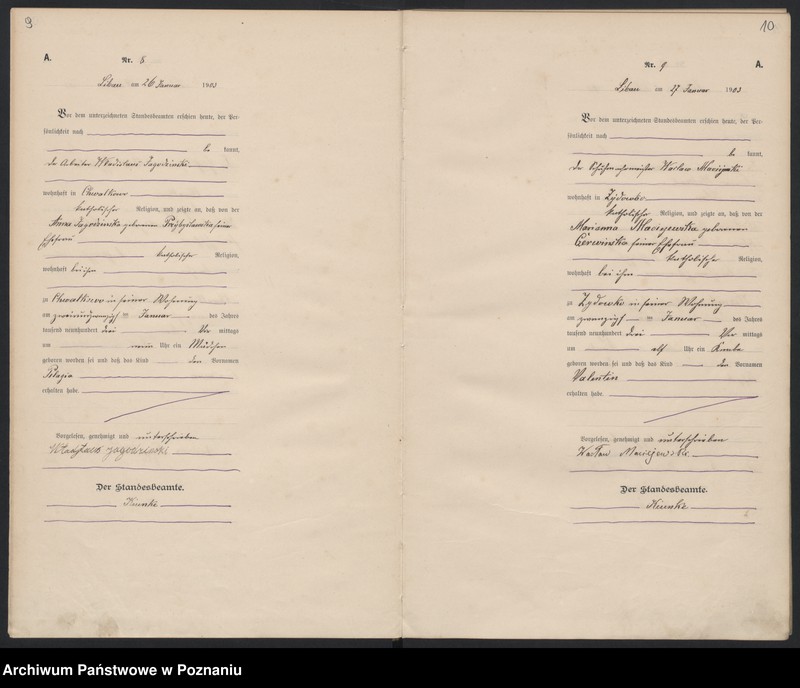 9
A.
Nr. 8
Libau am 26 Januar 1903
Vor dem unterzeichneten Standesbeamten erschien heute, der Per-
sönlichkeit nach
be kannt,
der Arbeiter Wladislaus Jagodzinski
wohnhaft in Chwalkowo
katholischer Religion, und zeigte an, daß von der
Anna Jagodzinska geborenen Przybylawska seine
Ehefrau
katholischer Religion,
wohnhaft bei ihm
zu Chwalkowo in seiner Wohnung
am zweiundzwanzigsten Januar des Jahres
tausend neunhundert drei Vor mittags
um neun Uhr ein Mädchen
geboren worden sei und daß das Kind den Vornamen
Pelagia
erhalten habe.
Vorgelesen, genehmigt und unterschrieben
Jagodzinski
Der Standesbeamte.
10
Nr. 9
A.
Libau am 27 Januar 1903
Vor dem unterzeichneten Standesbeamten erschien heute, der Per-
sönlichkeit nach
be kannt,
der Schuhmachermeister Waclaw Maciejewski
wohnhaft in Zydowko
katholischer Religion, und zeigte an, daß von der
Marianna Maciejewska geborenen
Czerwinska seiner Ehefrau
katholischer Religion,
wohnhaft bei ihm
zu Zydowko in seiner Wohnung
am zwanzigsten Januar des Jahres
tausend neunhundert drei Vor mittags
um elf Uhr ein Knabe
geboren worden sei und daß das Kind den Vornamen
Valentin
erhalten habe.
Vorgelesen, genehmigt und unterschrieben
Wacław Maciejewski
Der Standesbeamte.
Archiwum Państwowe w Poznaniu